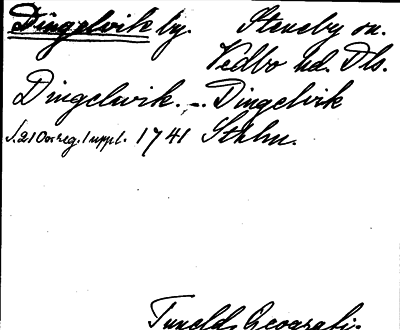 Dingelvik by. Steneby sn.
Vedbo hd. Dls.
Dingelwik. -- Dingelvik
s. 21 Ortreg. 1 uppl. 1741 Sthlm.
Tunelds Geografi.